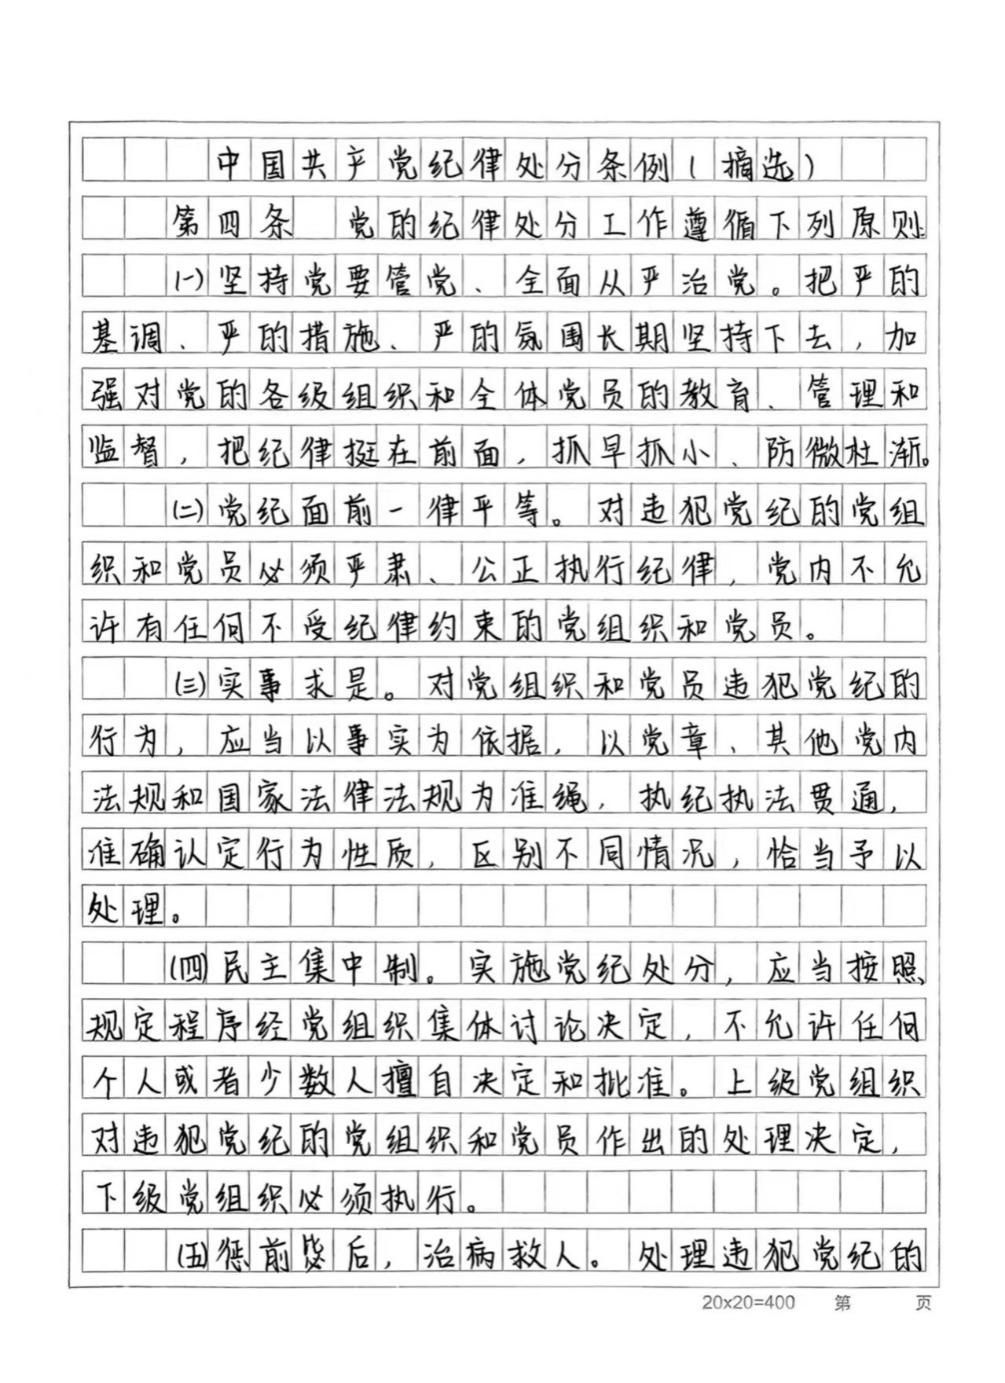 中国共产党纪律处分条例（摘选）
第四条 党的纪律处分工作遵循下列原则：
(一)坚持党要管党、全面从严治党。把严的
基调、严的措施、严的氛围长期坚持下去，加
强对党的各级组织和全体党员的教育、管理和
监督，把纪律挺在前面，抓早抓小、防微杜渐。
(二)党纪面前一律平等。对违犯党纪的党组
织和党员必须严肃、公正执行纪律，党内不允
许有任何不受纪律约束的党组织和党员。
(三)实事求是。对党组织和党员违犯党纪的
行为，应当以事实为依据，以党章、其他党内
法规和国家法律法规为准绳，执纪执法贯通，
准确认定行为性质，区别不同情况，恰当予以
处理。
(四)民主集中制。实施党纪处分，应当按照
规定程序经党组织集体讨论决定，不允许任何
个人或者少数人擅自决定和批准。上级党组织
对违犯党纪的党组织和党员作出的处理决定，
下级党组织必须执行。
(五)惩前毖后，治病救人。处理违犯党纪的
20x20=400 第 页